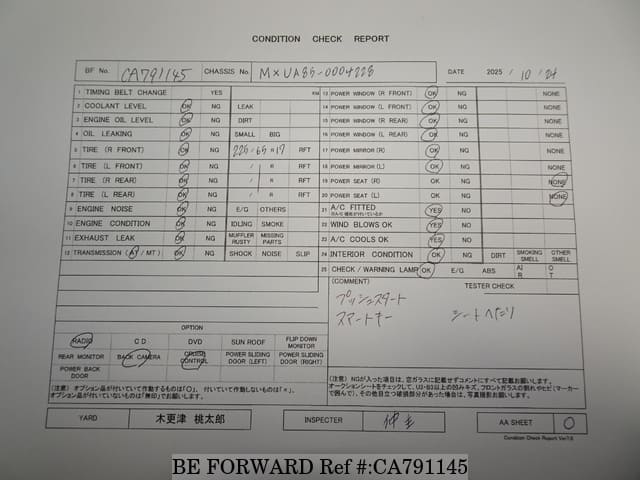 CONDITION CHECK REPORT
BF No. CA791145 CHASSIS No. MXUA85-0004228 DATE 2025 / 10 / 24
1 TIMING BELT CHANGE YES KM
2 COOLANT LEVEL OK NG LEAK
3 ENGINE OIL LEVEL OK NG DIRT
4 OIL LEAKING OK NG SMALL BIG
5 TIRE (R FRONT) OK NG 225/65R17 RFT
6 TIRE (L FRONT) OK NG / R RFT
7 TIRE (R REAR) OK NG / R RFT
8 TIRE (L REAR) OK NG / R RFT
9 ENGINE NOISE OK NG E/G OTHERS
10 ENGINE CONDITION OK NG IDLING SMOKE
11 EXHAUST LEAK OK NG MUFFLER RUSTY MISSING PARTS
12 TRANSMISSION (AT / MT) OK NG SHOCK NOISE SLIP
13 POWER WINDOW (R FRONT) OK NG NONE
14 POWER WINDOW (L FRONT) OK NG NONE
15 POWER WINDOW (R REAR) OK NG NONE
16 POWER WINDOW (L REAR) OK NG NONE
17 POWER MIRROR (R) OK NG NONE
18 POWER MIRROR (L) OK NG NONE
19 POWER SEAT (R) OK NG NONE
20 POWER SEAT (L) OK NG NONE
21 A/C FITTED YES NO
22 WIND BLOWS OK YES NO
23 A/C COOLS OK YES NO
24 INTERIOR CONDITION OK NG DIRT SMOKING SMELL OTHER SMELL
25 CHECK / WARNING LAMP OK E/G ABS AI R O T
(COMMENT) TESTER CHECK
プッシュスタート
スマートキー シートヘタリ
OPTION
RADIO CD DVD SUN ROOF FLIP DOWN MONITOR
REAR MONITOR BACK CAMERA CRUISE CONTROL POWER SLIDING DOOR (LEFT) POWER SLIDING DOOR (RIGHT)
POWER BACK DOOR
(注意) オプション品が付いていて作動するものは「○」、付いていて作動しないものは「×」、
オプション品が付いていないものは「無印」でお願いします。
(注意) NGが入った項目は、窓ガラスに記載せずコメントにすべて記載お願いします。
オークションシートをチェックして、U3・B3以上の凹みキズ、フロントガラスの割れやヒビ(マーカー
で囲んで)、その他目立つ破損部分があった場合は、写真撮影お願いします。
YARD 木更津 桃太郎 INSPECTER AA SHEET ○
Condition Check Report Ver7.0
BE FORWARD Ref #:CA791145